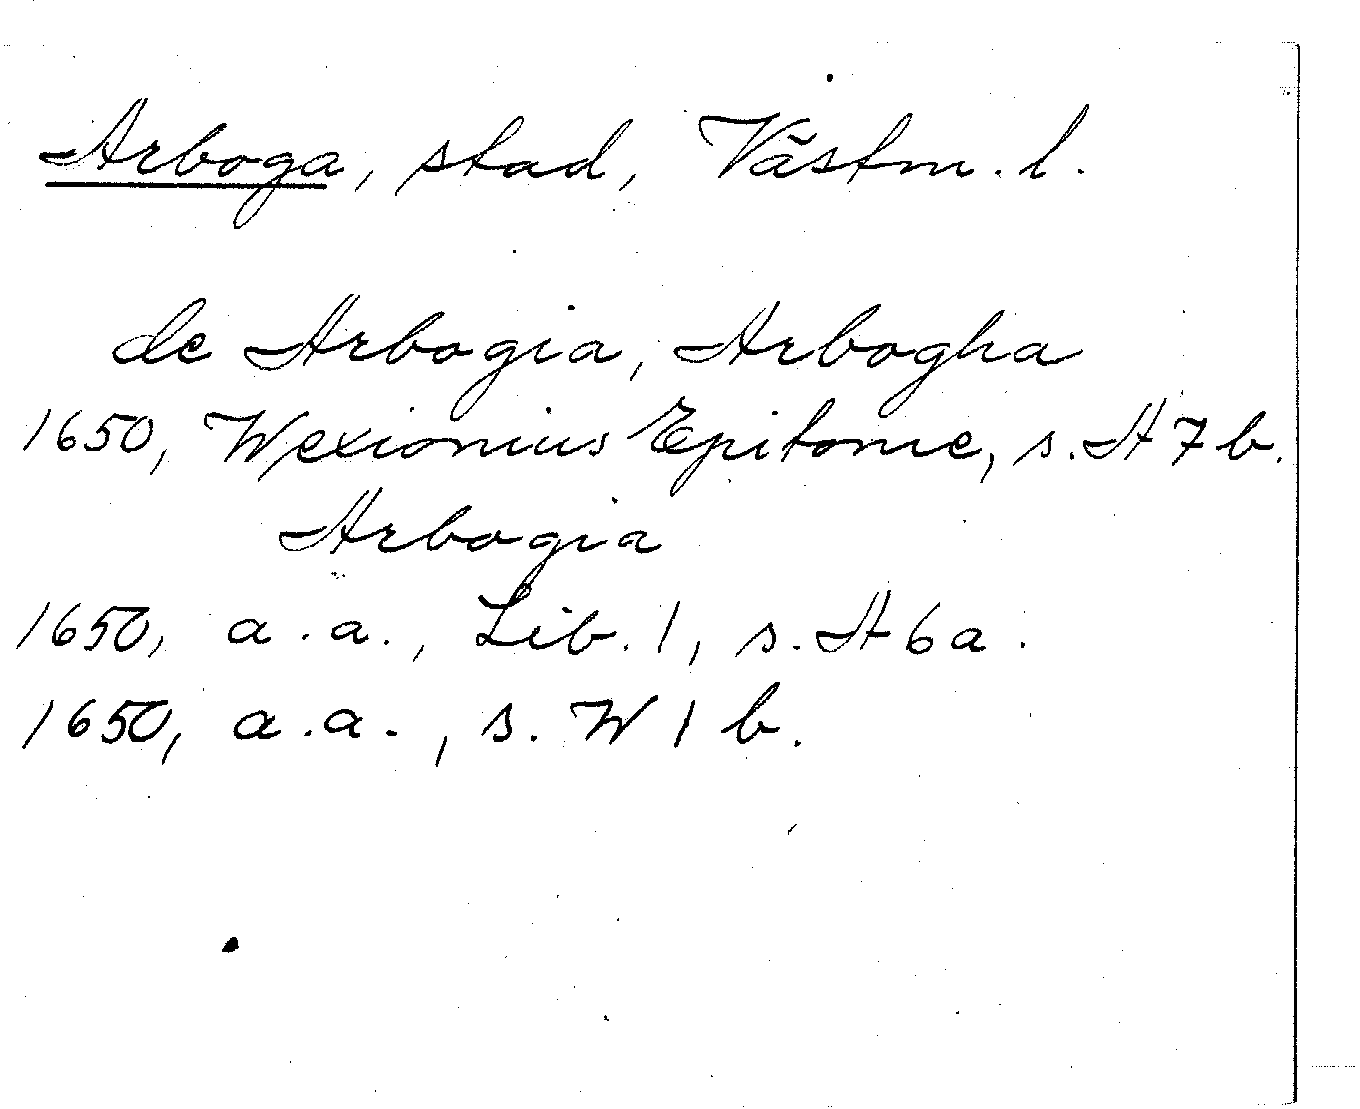 Arboga, stad, Västm. l.
de Arbogia, Arbogha
1650, Wexionius Epitome, s. A 7 b.
Arbogia
1650, a.a., Lib. 1, s. A 6 a.
1650, a.a., s. W 1 b.